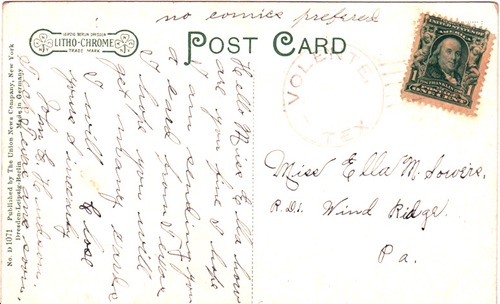 no comics prefered
LEIPZIG BERLIN DRESDEN
LITHO-CHROME
TRADE MARK
POST CARD
UNITED STATES OF AMERICA
1
ONE CENT
1
VOLENTE,
TEX
Hello Miss Ella how
are you fine I hope
I am sending you
a card from Texas
I hope you will
get many cards
I will close
yours Sincerely
John E. Henderson.
Miss Ella M. Sowers,
R.D.1. Wind Ridge.
Pa.
No. D-1071 Published by The Union News Company, New York
Dresden-Leipzig-Berlin Made in Germany